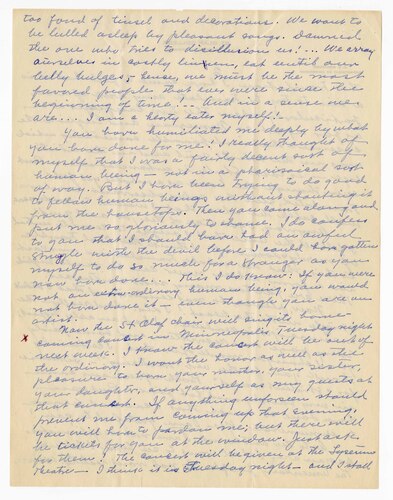 too fond of tinsel and decorations. We want to
be lulled asleep by pleasant songs. Damned
the one who tries to disillusion us!... We array
ourselves in costly linen, eat until our
belly bulges, hence, we must be the most
favored people that ever were since the
beginning of time!.. And in a sense we
are.... I am a hearty eater myself!
You have humiliated me deeply by what
you have done for me! I really thought of
myself that I was a fairly decent sort of
human being — not in a pharisaical sort
of way. But I have been trying to do good
to fellow human beings without shouting it
from the housetops. Then you come along and
put me so gloriously to shame. I do confess
to you that I should have had an awful
struggle with the devil before I could have gotten
myself to do so much for a stranger as you
now have done.... This I do know: If you were
not an extra-ordinary human being, you would
not have done it — even though you are an
artist!
Now the St Olaf choir will sing its home
coming concert in Minneapolis Tuesday night
x next week. I know the concert will be out of
the ordinary. I want the honor as well as the
pleasure to have your mother, your sister,
your daughter, and yourself as my guests at
that concert. If anything unforseen should
prevent me from coming up that evening,
you will have to pardon me; but there will
be tickets for you at the window. Just ask
for them! The concert will be given at the Lyceum
Theatre — I think it is Tuesday night — and I shall